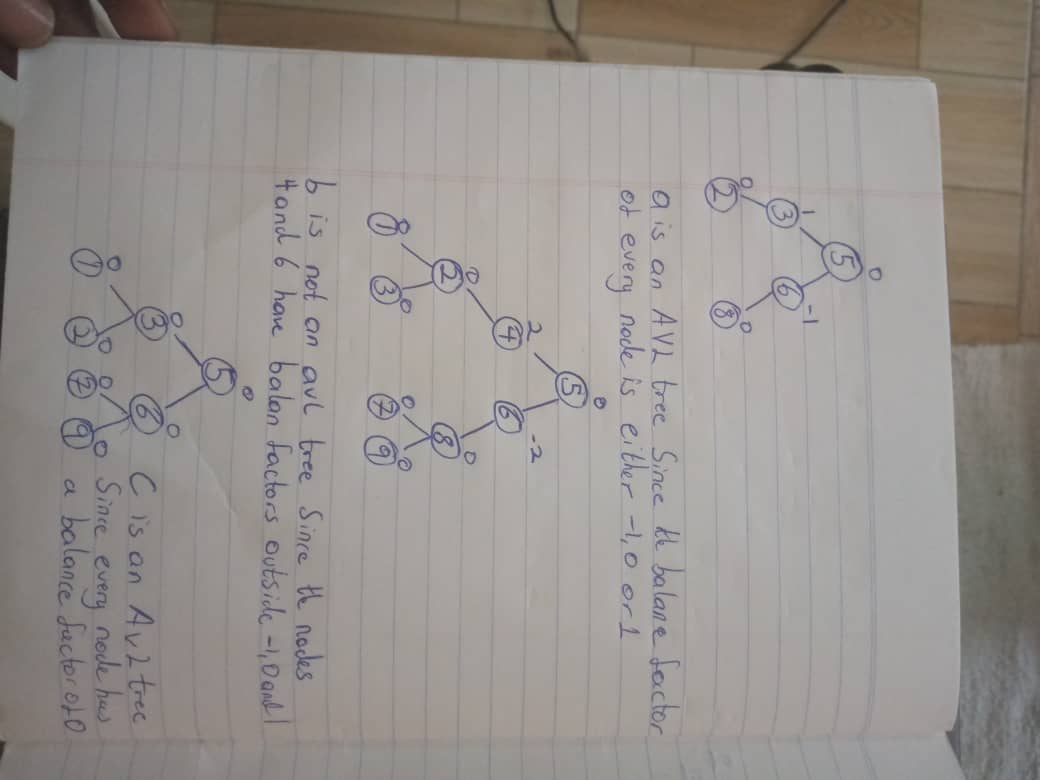 5 0
3 1 6 -1
2 0 8 0
a is an AVL tree Since the balane factor
of every node is either -1, 0 or 1
5 0
4 2 6 -2
2 0 8 0
1 0 3 0 7 0 9 0
b is not an avl tree Since the nodes
4 and 6 have balan factors outside -1, 0 and 1
5 0
3 0 6 0
1 0 2 0 7 0 9 0
C is an AVL tree
Since every node has
a balance factor of 0